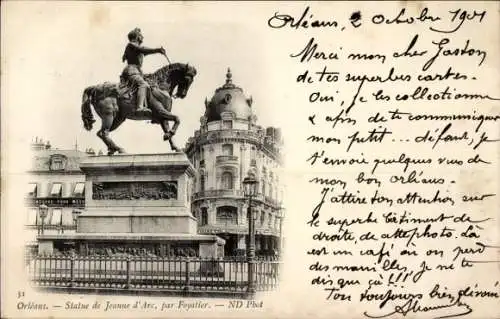 Orléans, 2 octobre 1901
Merci mon cher Gaston
de tes superbes cartes.
Oui, je les collectionne
& afin de te communiquer
mon petit ... défaut, je
t'envoie quelques vues de
mon bon Orléans.
J'attire ton attention sur
le superbe bâtiment de
droite, de cette photo. Là
est un café où on perd
des manilles, je ne te
dis que ça!
Ton toujours bien dévoué
31
Orléans. — Statue de Jeanne d'Arc, par Foyatier. — ND Phot